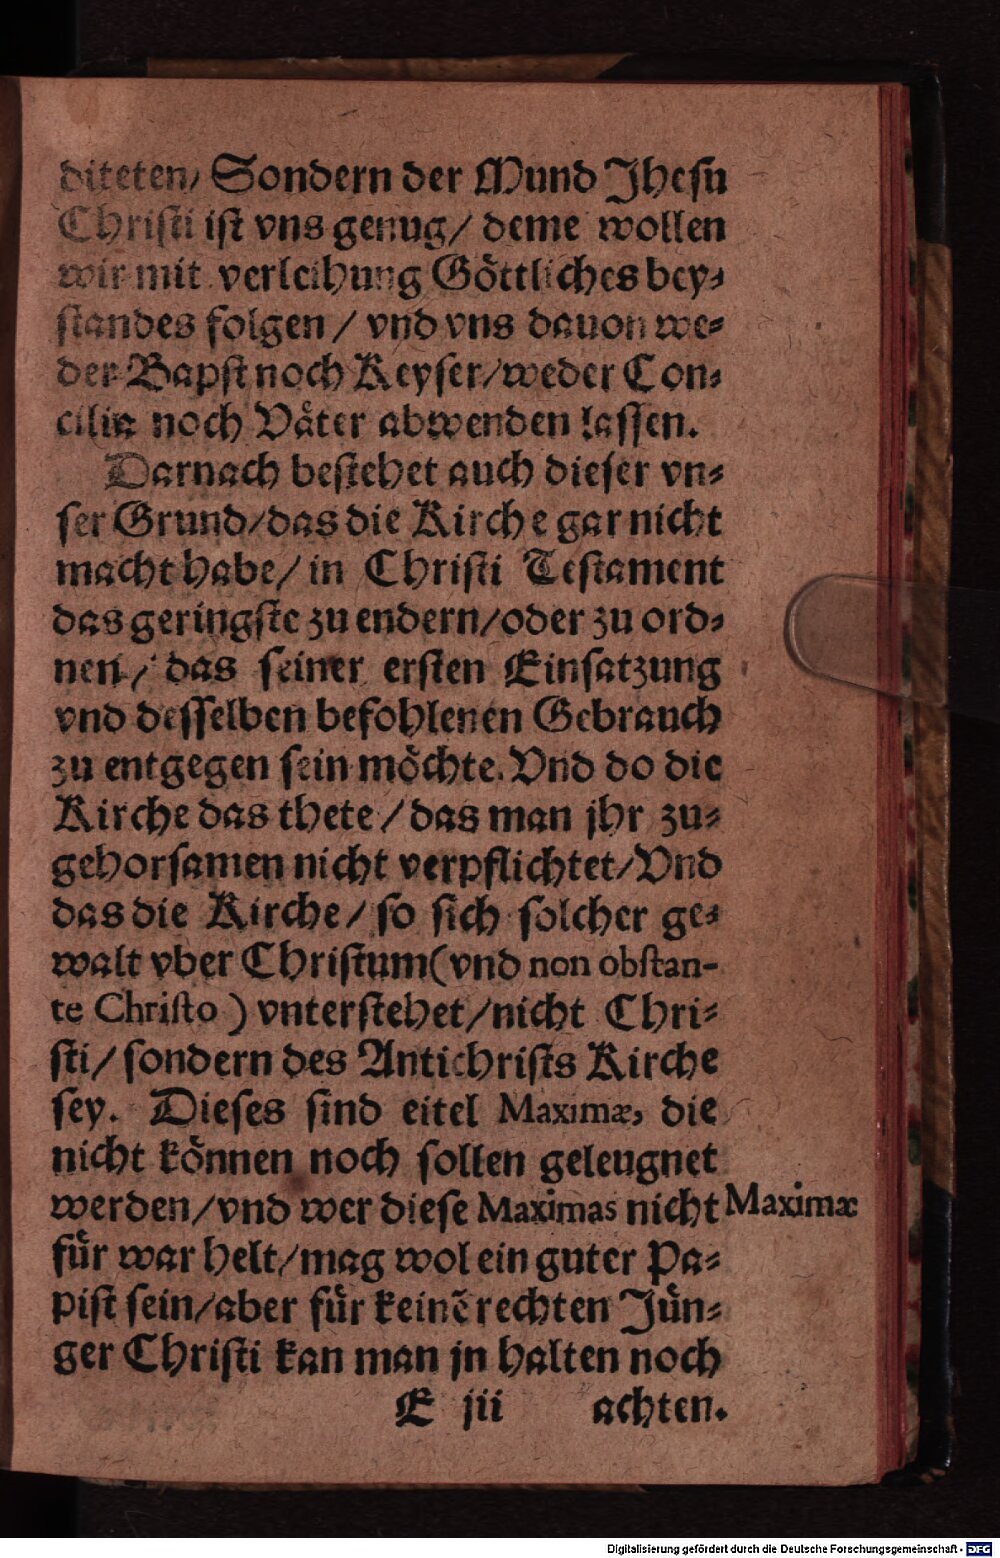 diteten/ Sondern der Mund Jhesu
Christi ist vns genug/ deme wollen
wir mit verleihung Göttliches bey⸗
standes folgen/ vnd vns dauon we⸗
der Bapst noch Keyser/weder Con⸗
cilia noch Väter abwenden lassen.
Darnach bestehet auch dieser vn⸗
ser Grund/das die Kirche gar nicht
macht habe/in Christi Testament
das geringste zu endern/oder zu ord⸗
nen/ das seiner ersten Einsatzung
vnd desselben befohlenen Gebrauch
zu entgegen sein möchte. Vnd do die
Kirche das thete/das man jhr zu⸗
gehorsamen nicht verpflichtet/Vnd
das die Kirche/ so sich solcher ge⸗
walt vber Christum(vnd non obstan-
te Christo) vnterstehet/nicht Chri⸗
sti/ sondern des Antichrists Kirche
sey. Dieses sind eitel Maximæ, die
nicht können noch sollen geleugnet
werden/vnd wer diese Maximas nicht
Maximæ
für war helt/mag wol ein guter Pa⸗
pist sein/aber für keinē rechten Jün⸗
ger Christi kan man jn halten noch
E iii achten.
Digitalisierung gefördert durch die Deutsche Forschungsgemeinschaft - DFG